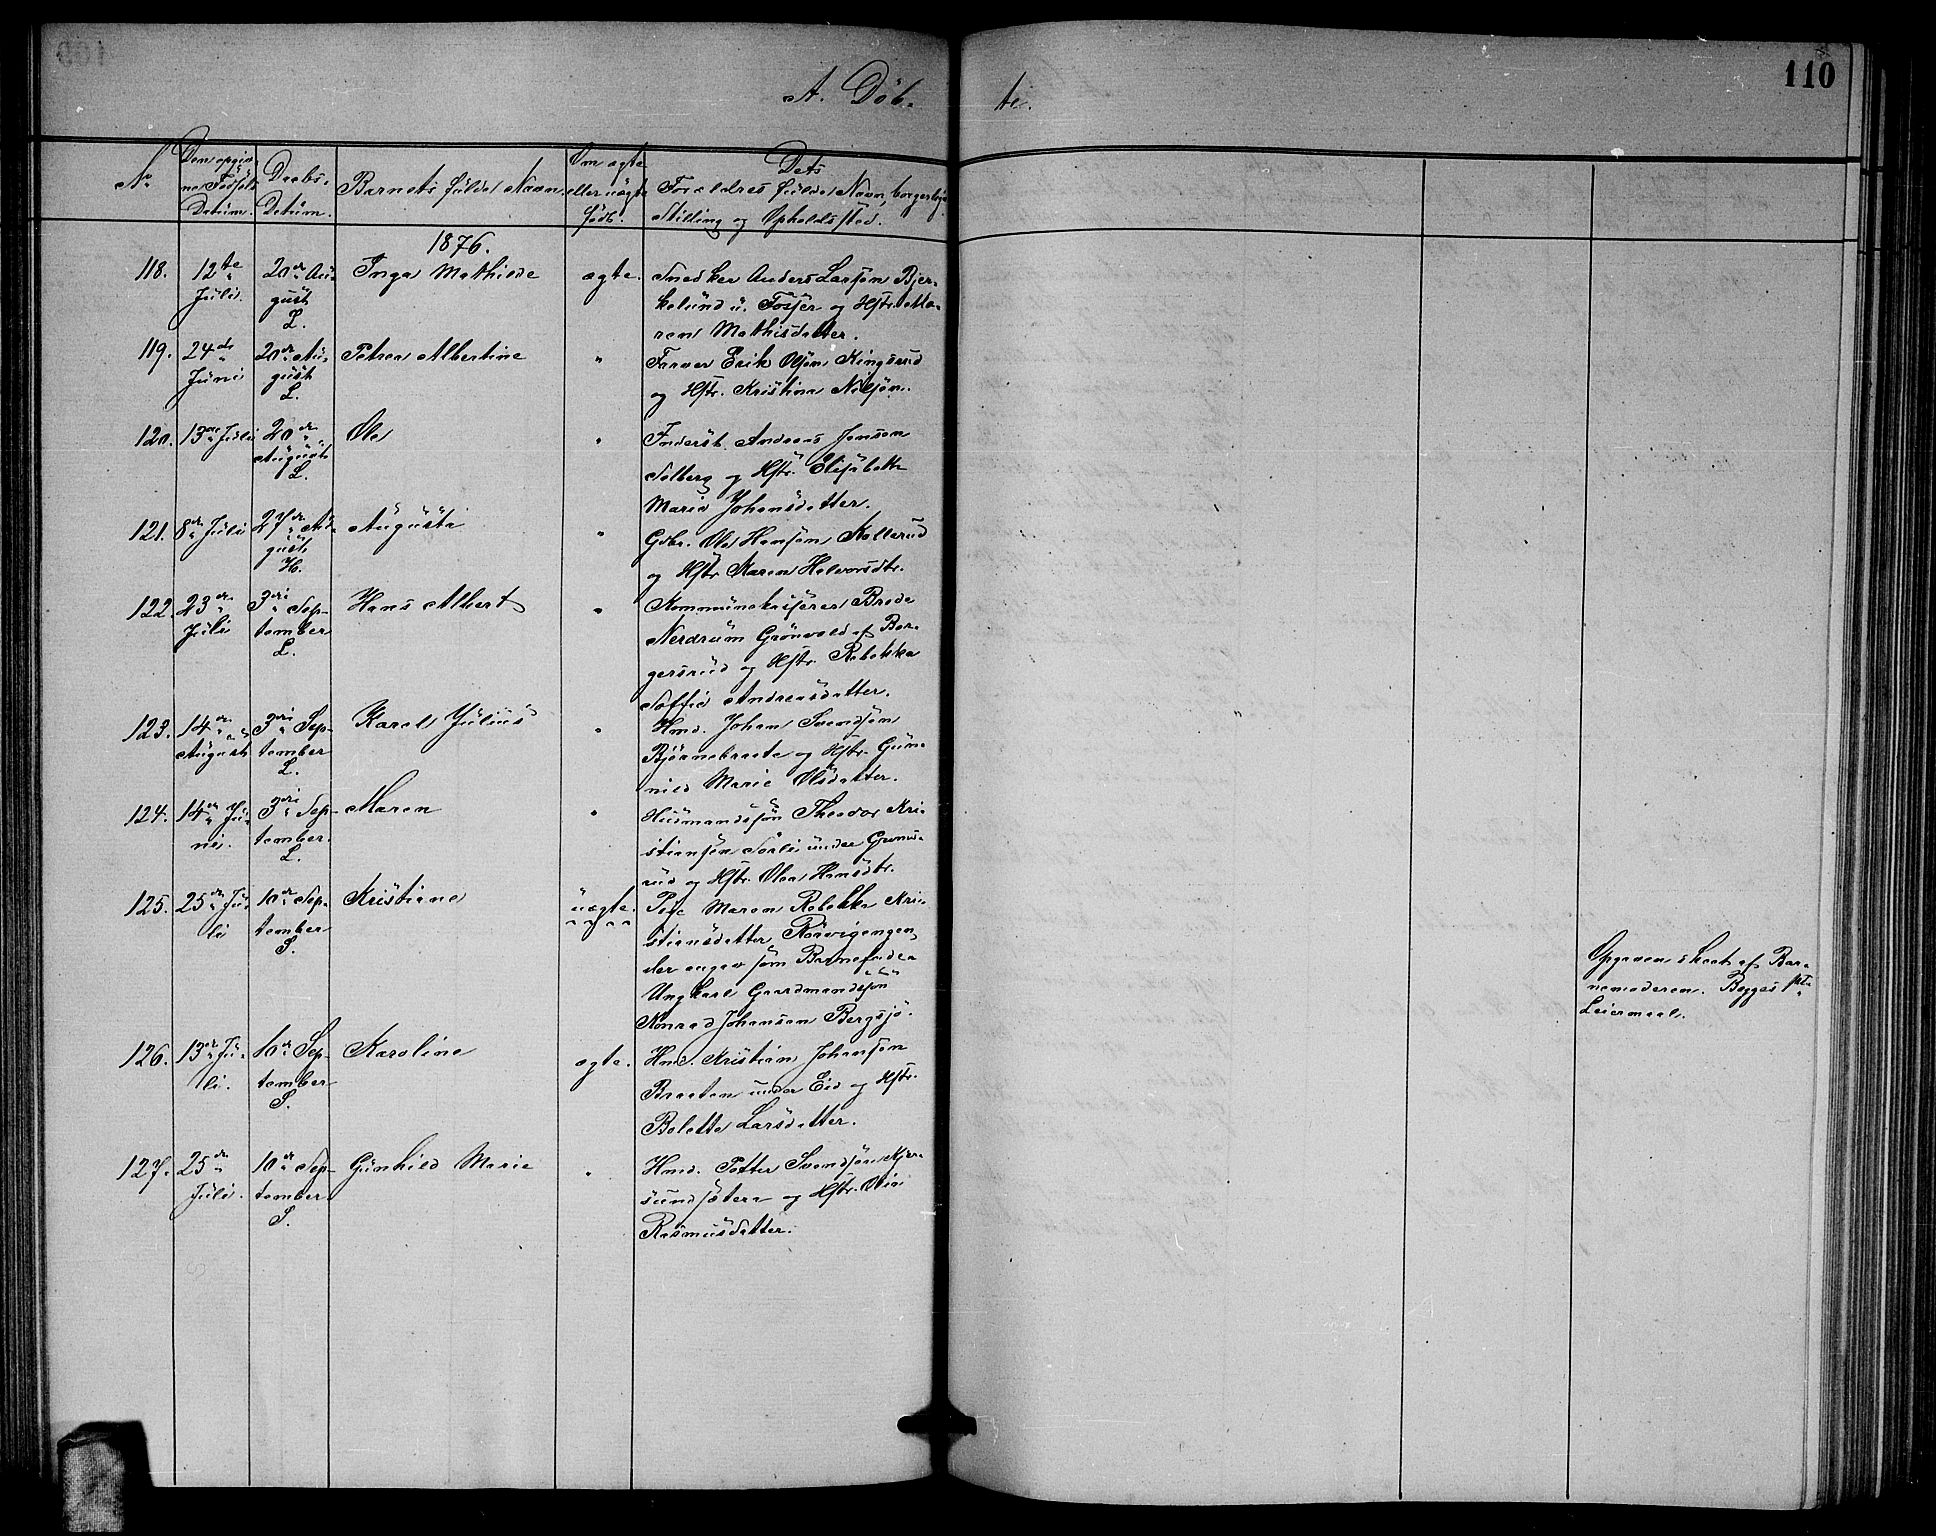 110
A. Döb-
te.
No
Den opgiv-
ne Födsels
Datum.
Daabs-
Datum.
Barnets fulde Navn.
Om ægte
eller uægte
født.
Dets
Forældres fulde Navn, borgerlige
Stilling og Opholdssted.
1876.
118.
12te
Juli.
20de Au-
gust
L.
Inga Mathilde
ægte.
Snedker Anders Larsøn Bjer-
kelund u. Fosser og Hstr. Ma-
ren Mathisdatter.
119.
24de
Juni
20de Au-
gust
L.
Petrea Albertine
"
Farver Erik Olsøn Kingsrud
og Hstr. Kristine Nilsøn.
120.
13de Juli
20de
August
L.
Ole
"
Inderst Andreas Jensen
Solberg og Hstr. Elisabeth
Marie Johansdatter.
121.
8de Juli
27de Au-
gust
H.
Augusta
"
Gdbr. Ole Hansøn Kollerud
og Hstr Karen Halvorsdtr.
122.
23de
Juli
3die Sep-
tember
L.
Hans Albert
"
Kommunekasserer Brede
Nerdrum Grønvold af Bør-
gersrud og Hstr. Rebekka
Soffie Andreasdatter.
123.
14de
August
3die Sep-
tember
L.
Karel Julius
"
Hmd. Johan Svendsøn
Bjørnebraate og Hstr. Gun-
nild Marie Olsdatter.
124.
14de Ju-
ni.
3die Sep-
tember.
L.
Maren
"
Husmandssøn Theodor Kri-
stiansøn Sørli under Grinis-
rud og Hstr. Olea Hansdtr.
125.
25de Ju-
li
10de Sep-
tember
S.
Kristiane
uægte.
Pige Maren Rebekka Kri-
stiansdatter Rørvigengen,
der angav som Barnefader
Ungkarl Gaardmandssøn
Konrad Johansen Bergsjø.
Opgaven skeet af Bar-
nemoderen. Begges 1ste
Leiermaal.
126.
13de Ju-
li.
10de Sep-
tember
S.
Karoline
ægte.
Hmd. Kristian Johansøn
Braaten under Eid og Hstr.
Bolette Larsdatter.
127.
25de
Juli.
10de Sep-
tember
S.
Gunhild Marie
"
Hmd. Petter Svendsøn Kjer-
sundsætera og Hstr. Olia
Rasmusdatter.